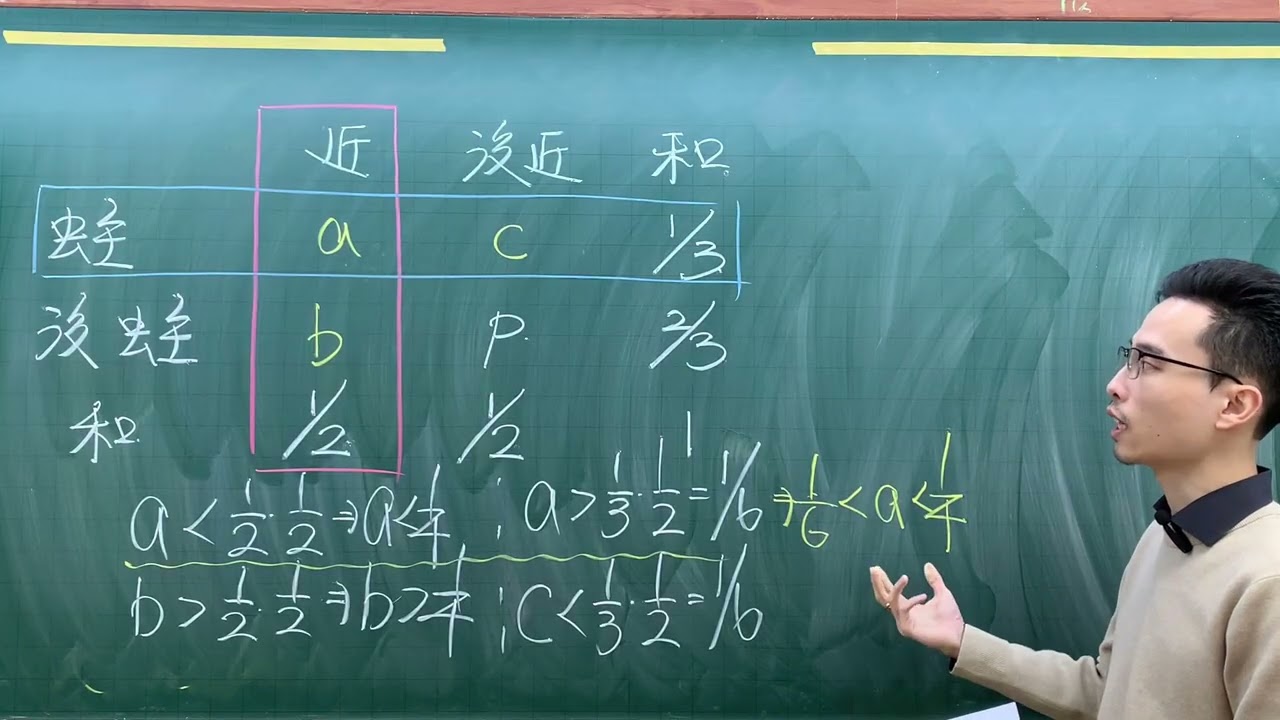 近 沒近 和
蛀 a c 1/3
沒蛀 b P 2/3
和 1/2 1/2
a < 1/2 · 1/2 ⇒ a < 1/4 ; a > 1/3 · 1/2 = 1/6 ⇒ 1/6 < a < 1/4
b > 1/2 · 1/2 ⇒ b > 1/4 ; c < 1/3 · 1/2 = 1/6